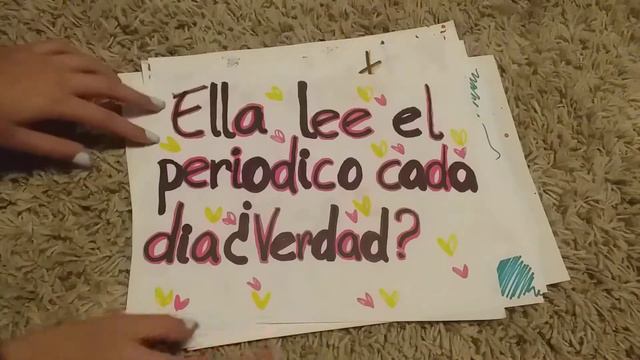 Ella lee el
periodico cada
dia¿Verdad?